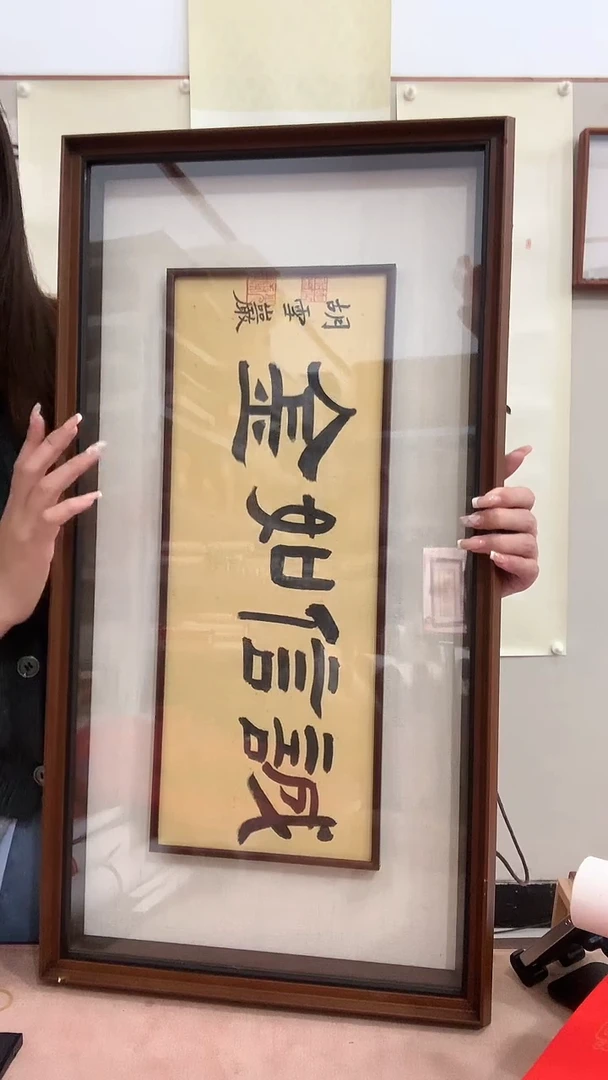 誠信如金
胡雪巖